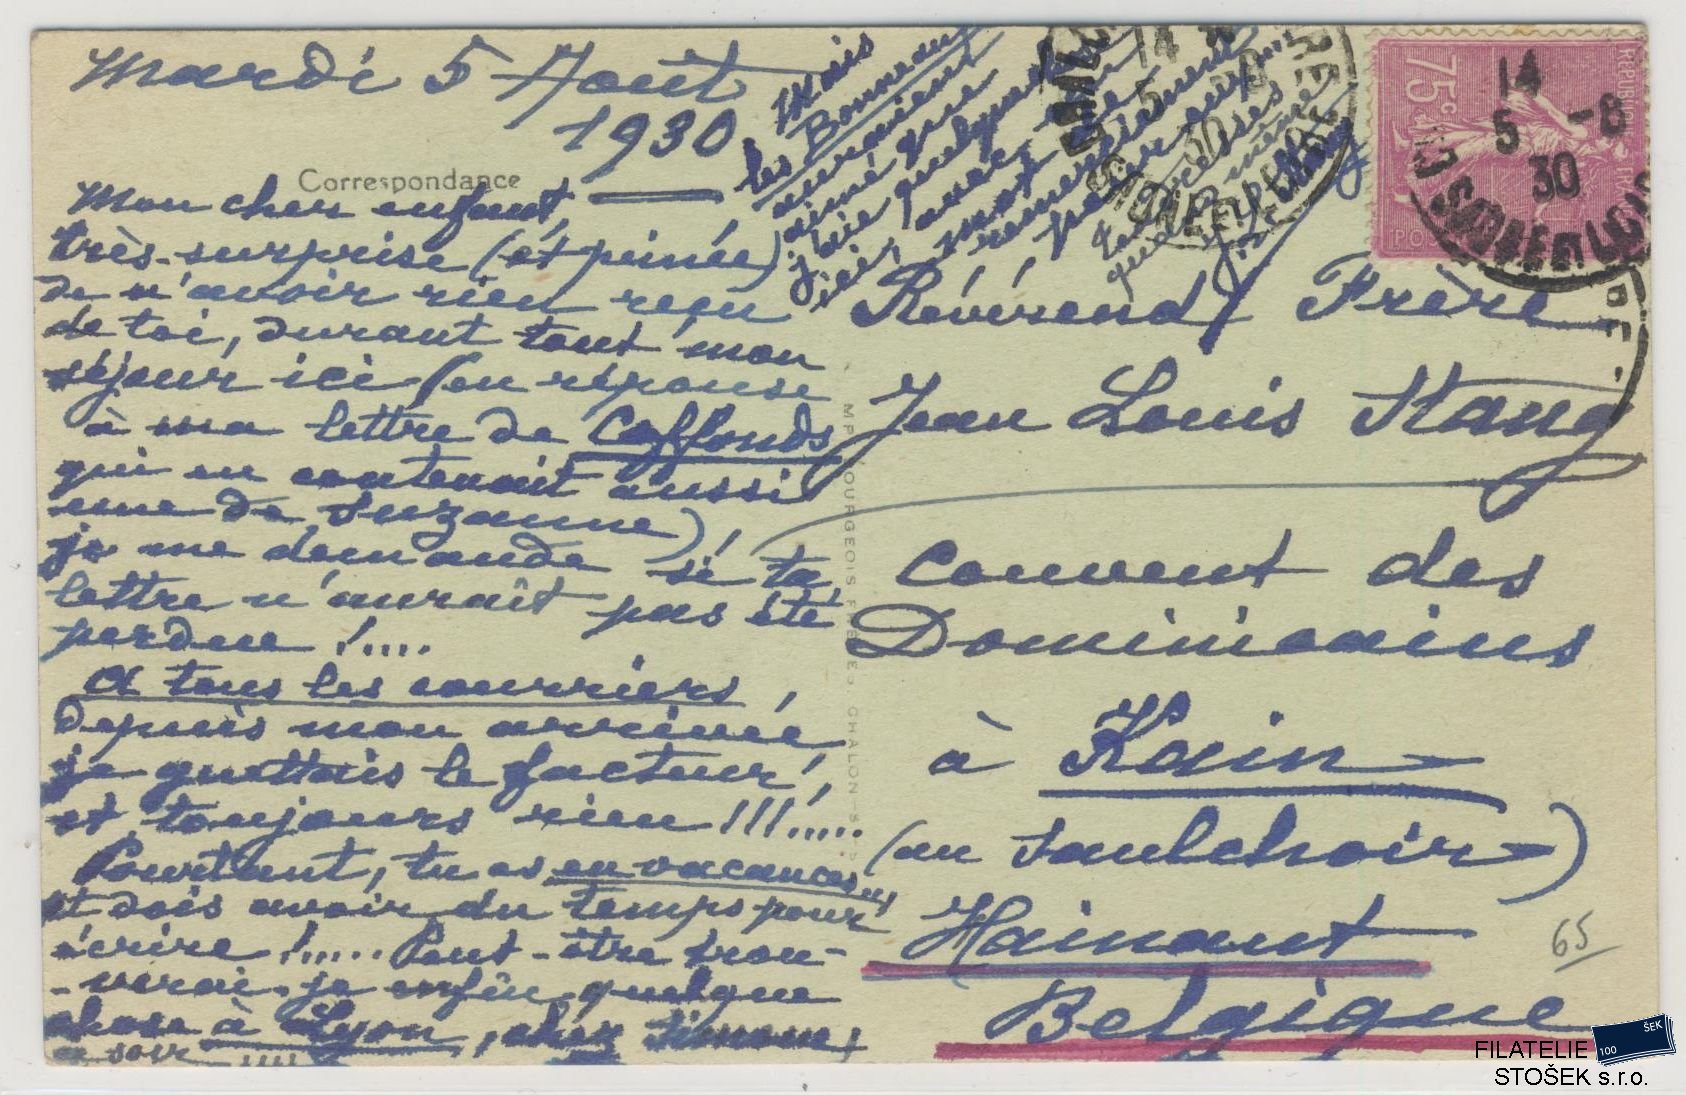 Mardi 5 Août
1930
Correspondance
Mon cher enfant,
très-surprise (et peinée)
de n'avoir rien reçu
de toi, durant tout mon
séjour ici (en réponse
à ma lettre de Coffonds
qui en contenait aussi
une de Suzanne)!
je me demande si ta
lettre n'aurait pas été
perdue !....
A tous les courriers,
depuis mon arrivée
je guettais le facteur,
et toujours rien !!!.....
Pourtant, tu es en vacances...
et dois avoir du temps pour
écrire !..... Peut-être trou-
-verai-je enfin quelque
chose à Lyon, chez Simone,
ce soir !!!!
Mais
les Bonneau
auraient
aimé que
j'aie quelque
ici, avec un
mot de
remerciement
pour eux
Révérend Frère
Jean Louis Kang
Couvent des
Dominicains
à Kain
(au Saulchoir)
Hainaut
Belgique
65
MP BOURGEOIS FRÈRES, CHALON-S
75c
REPUBLI
POS
14
5 -8
30
14
5
30
SAONE-ET-LOIRE
SAONE ET LOIRE
FILATELIE
STOŠEK s.r.o.
ŠEK
100